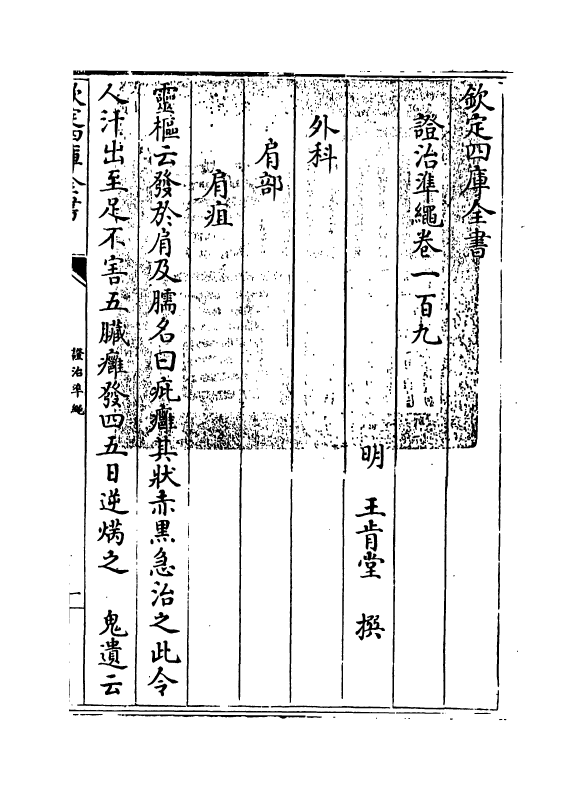 欽定四庫全書
證治準繩卷一百九
明 王肯堂 撰
外科
肩部
肩疽
靈樞云發於肩及臑名曰疵癰其狀赤黒急治之此令
人汗出至足不害五臟癰發四五日逆焫之 鬼遺云
欽定四庫全書
證治準繩
一